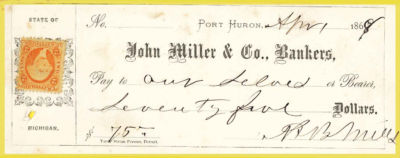 STATE OF
No. PORT HURON, Apr 1 1868
John Miller & Co., Bankers,
Pay to our selves or Bearer,
Seventy five Dollars.
$ 75
MICHIGAN.